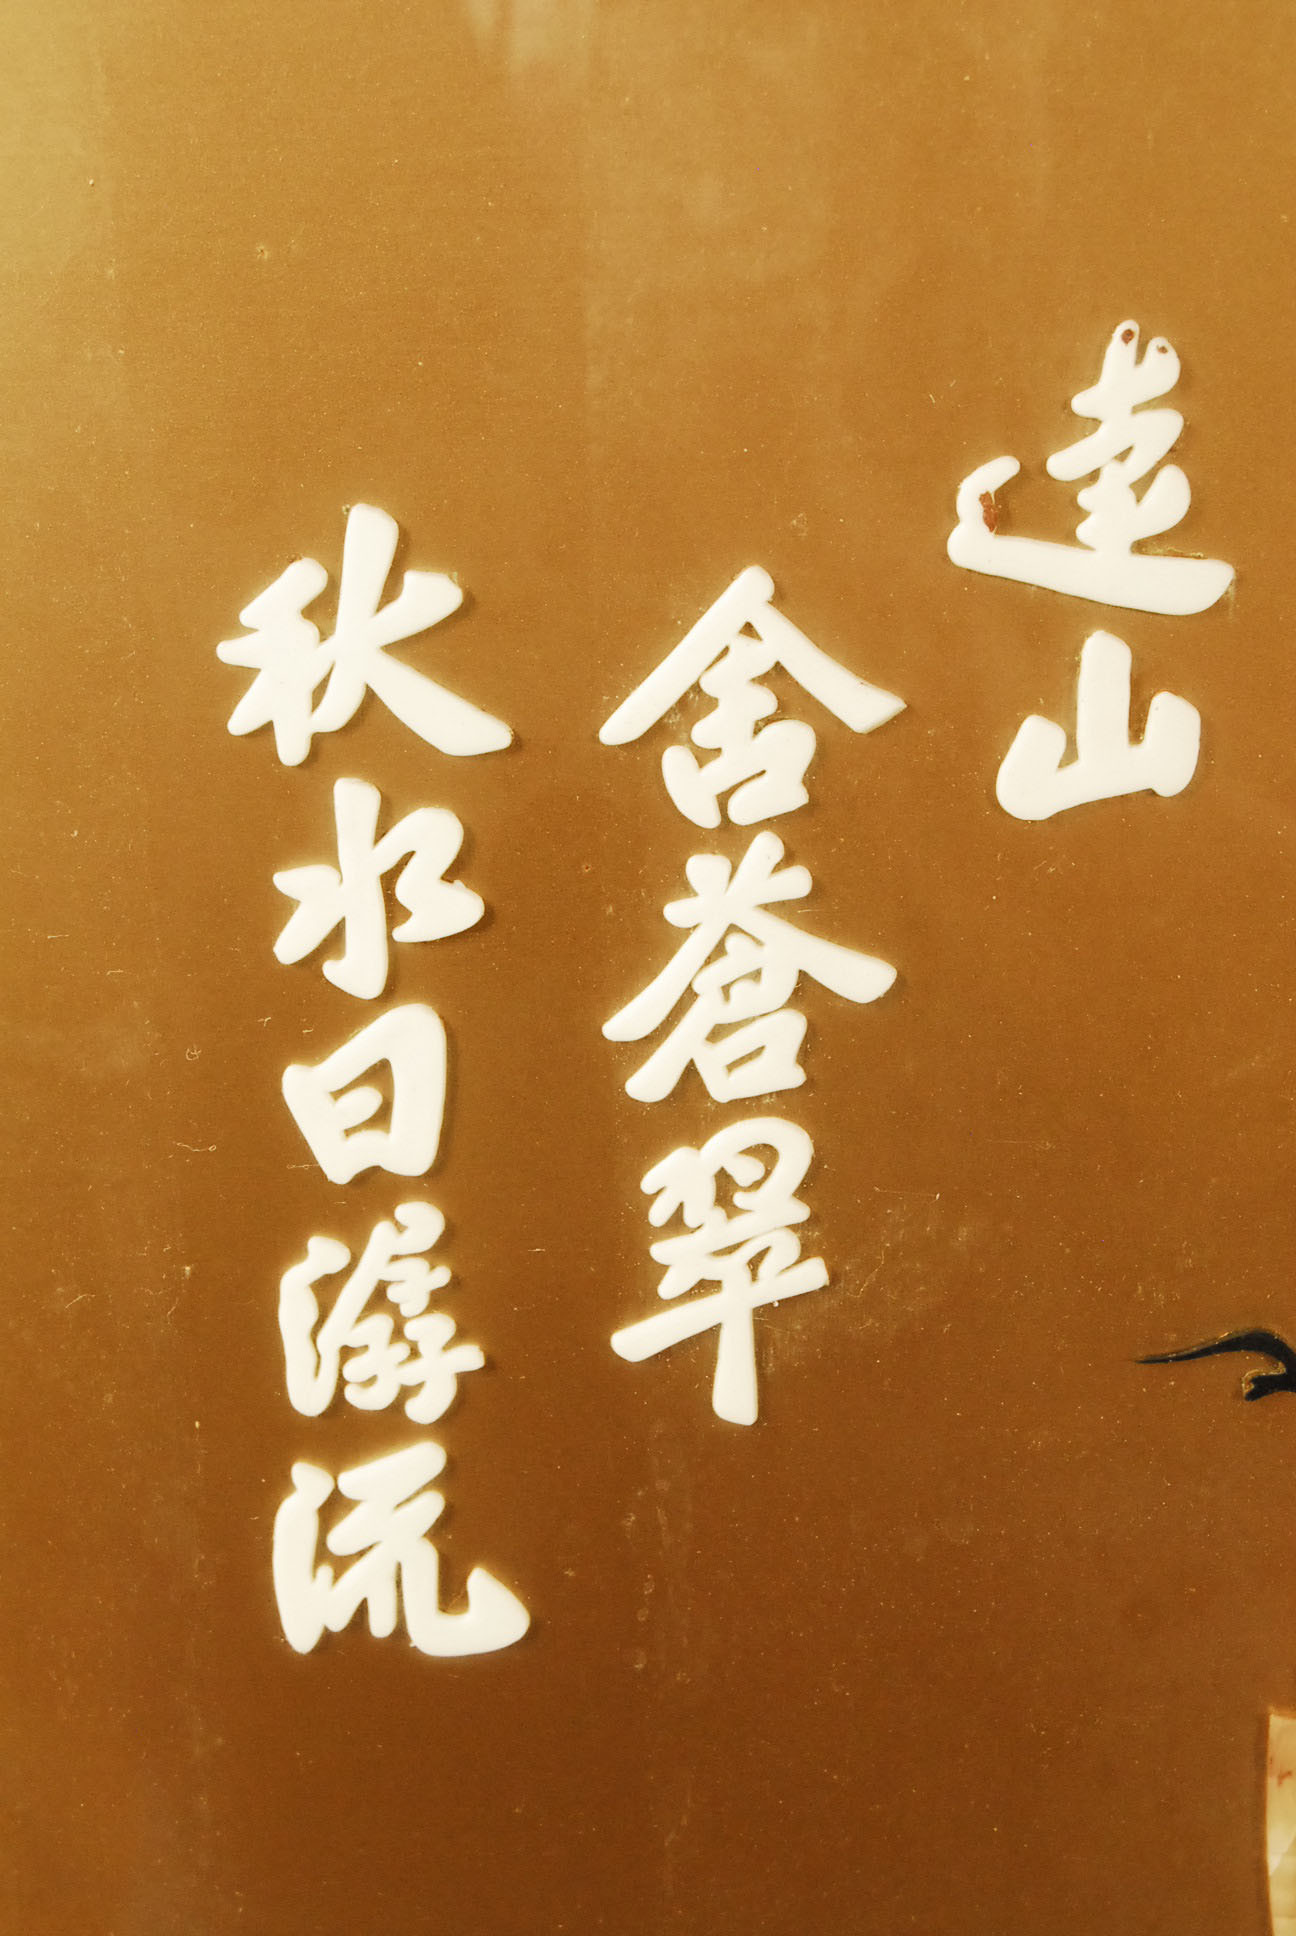 遠山
舍蒼翠
秋水日潺流